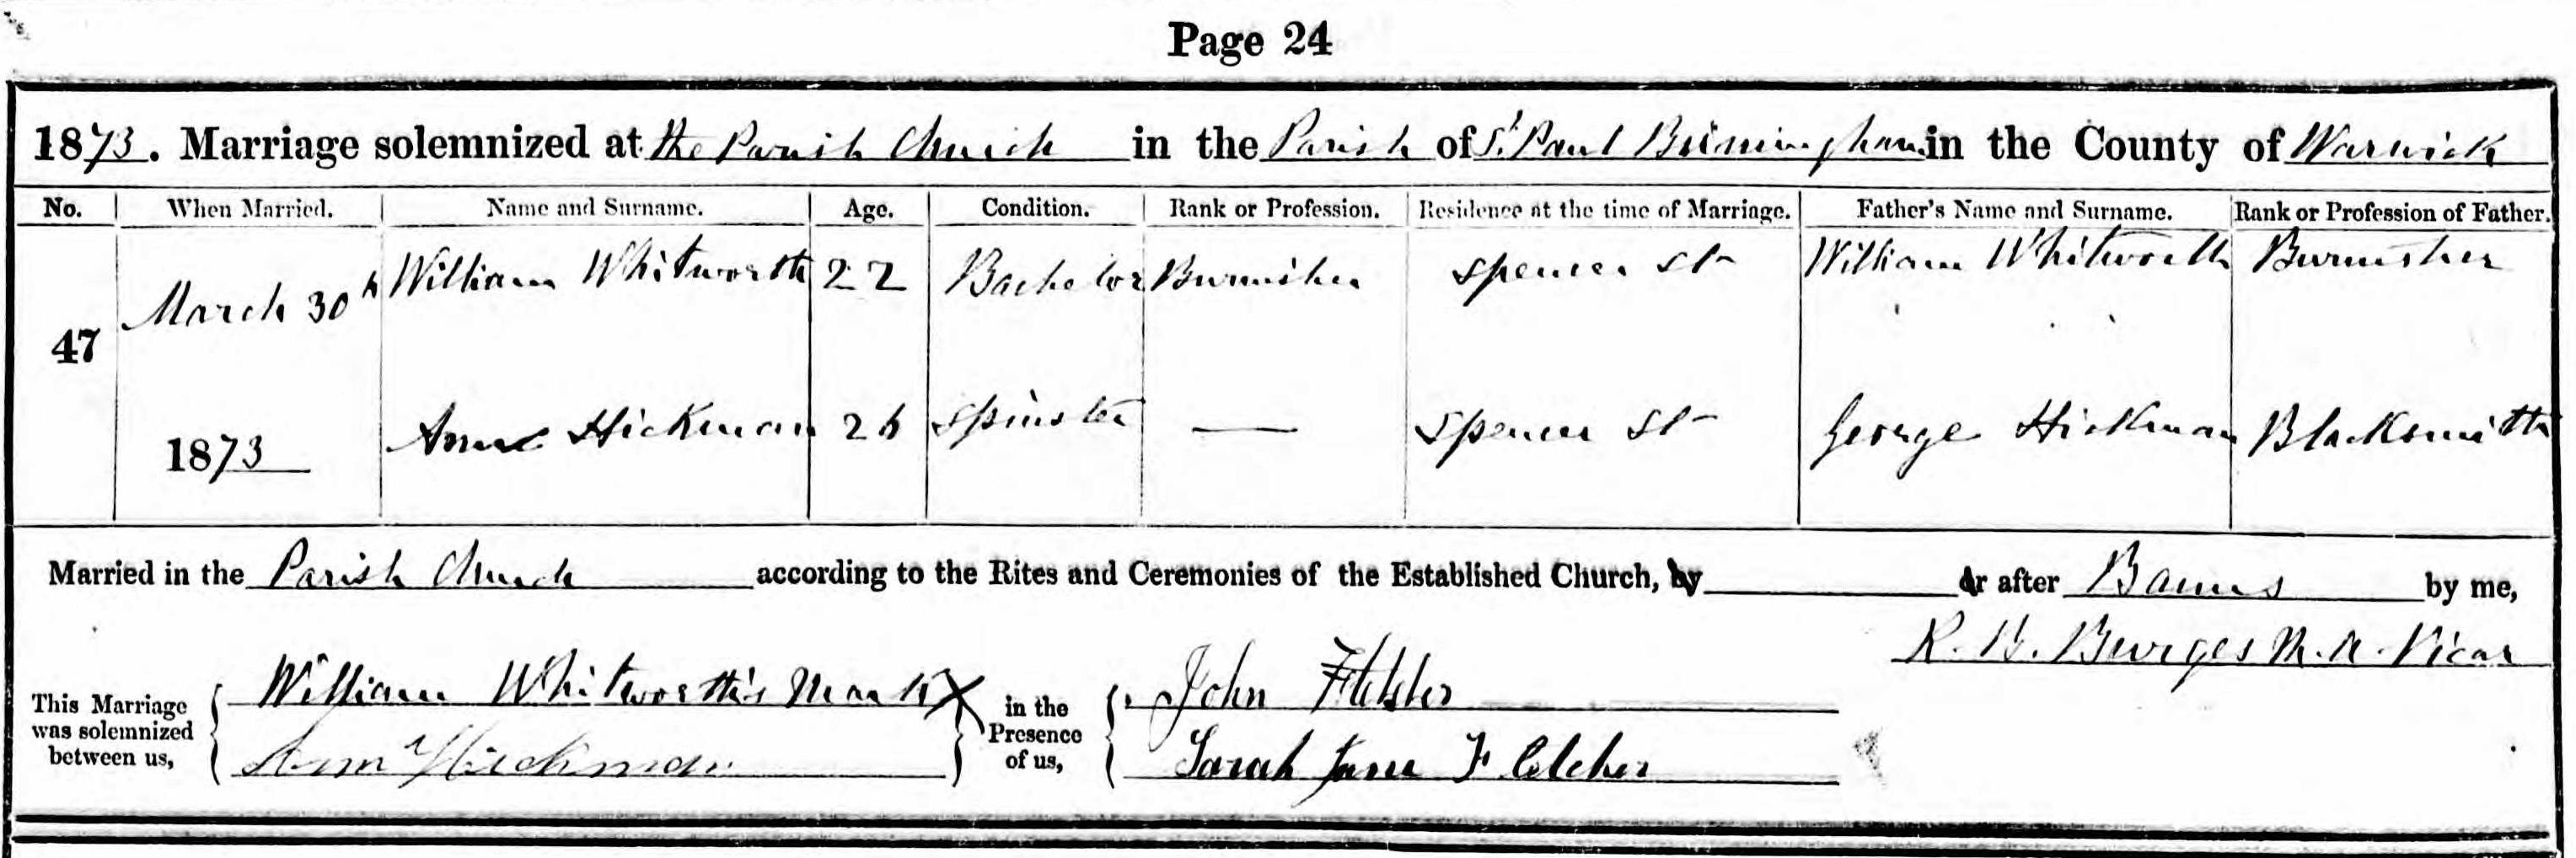 Page 24
1873. Marriage solemnized at the Parish Church in the Parish of St Paul Birmingham in the County of Warwick
No. When Married. Name and Surname. Age. Condition. Rank or Profession. Residence at the time of Marriage. Father's Name and Surname. Rank or Profession of Father.
47 March 30th William Whitworth 22 Bachelor Burnisher Spencer St William Whitworth Burnisher
1873 Ann Hickman 26 Spinster — Spencer St George Hickman Blacksmith
Married in the Parish Church according to the Rites and Ceremonies of the Established Church, by or after Banns by me,
R. B. Burges M.A. Vicar
This Marriage was solemnized between us, William Whitworth's Mark X in the Presence of us, John
Ann Hickman Sarah Jane Fletcher